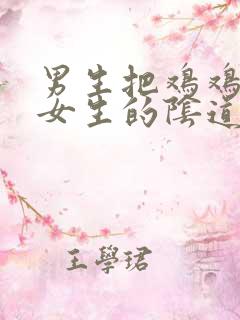 男生把鸡鸡
女生的陰道
王學珺